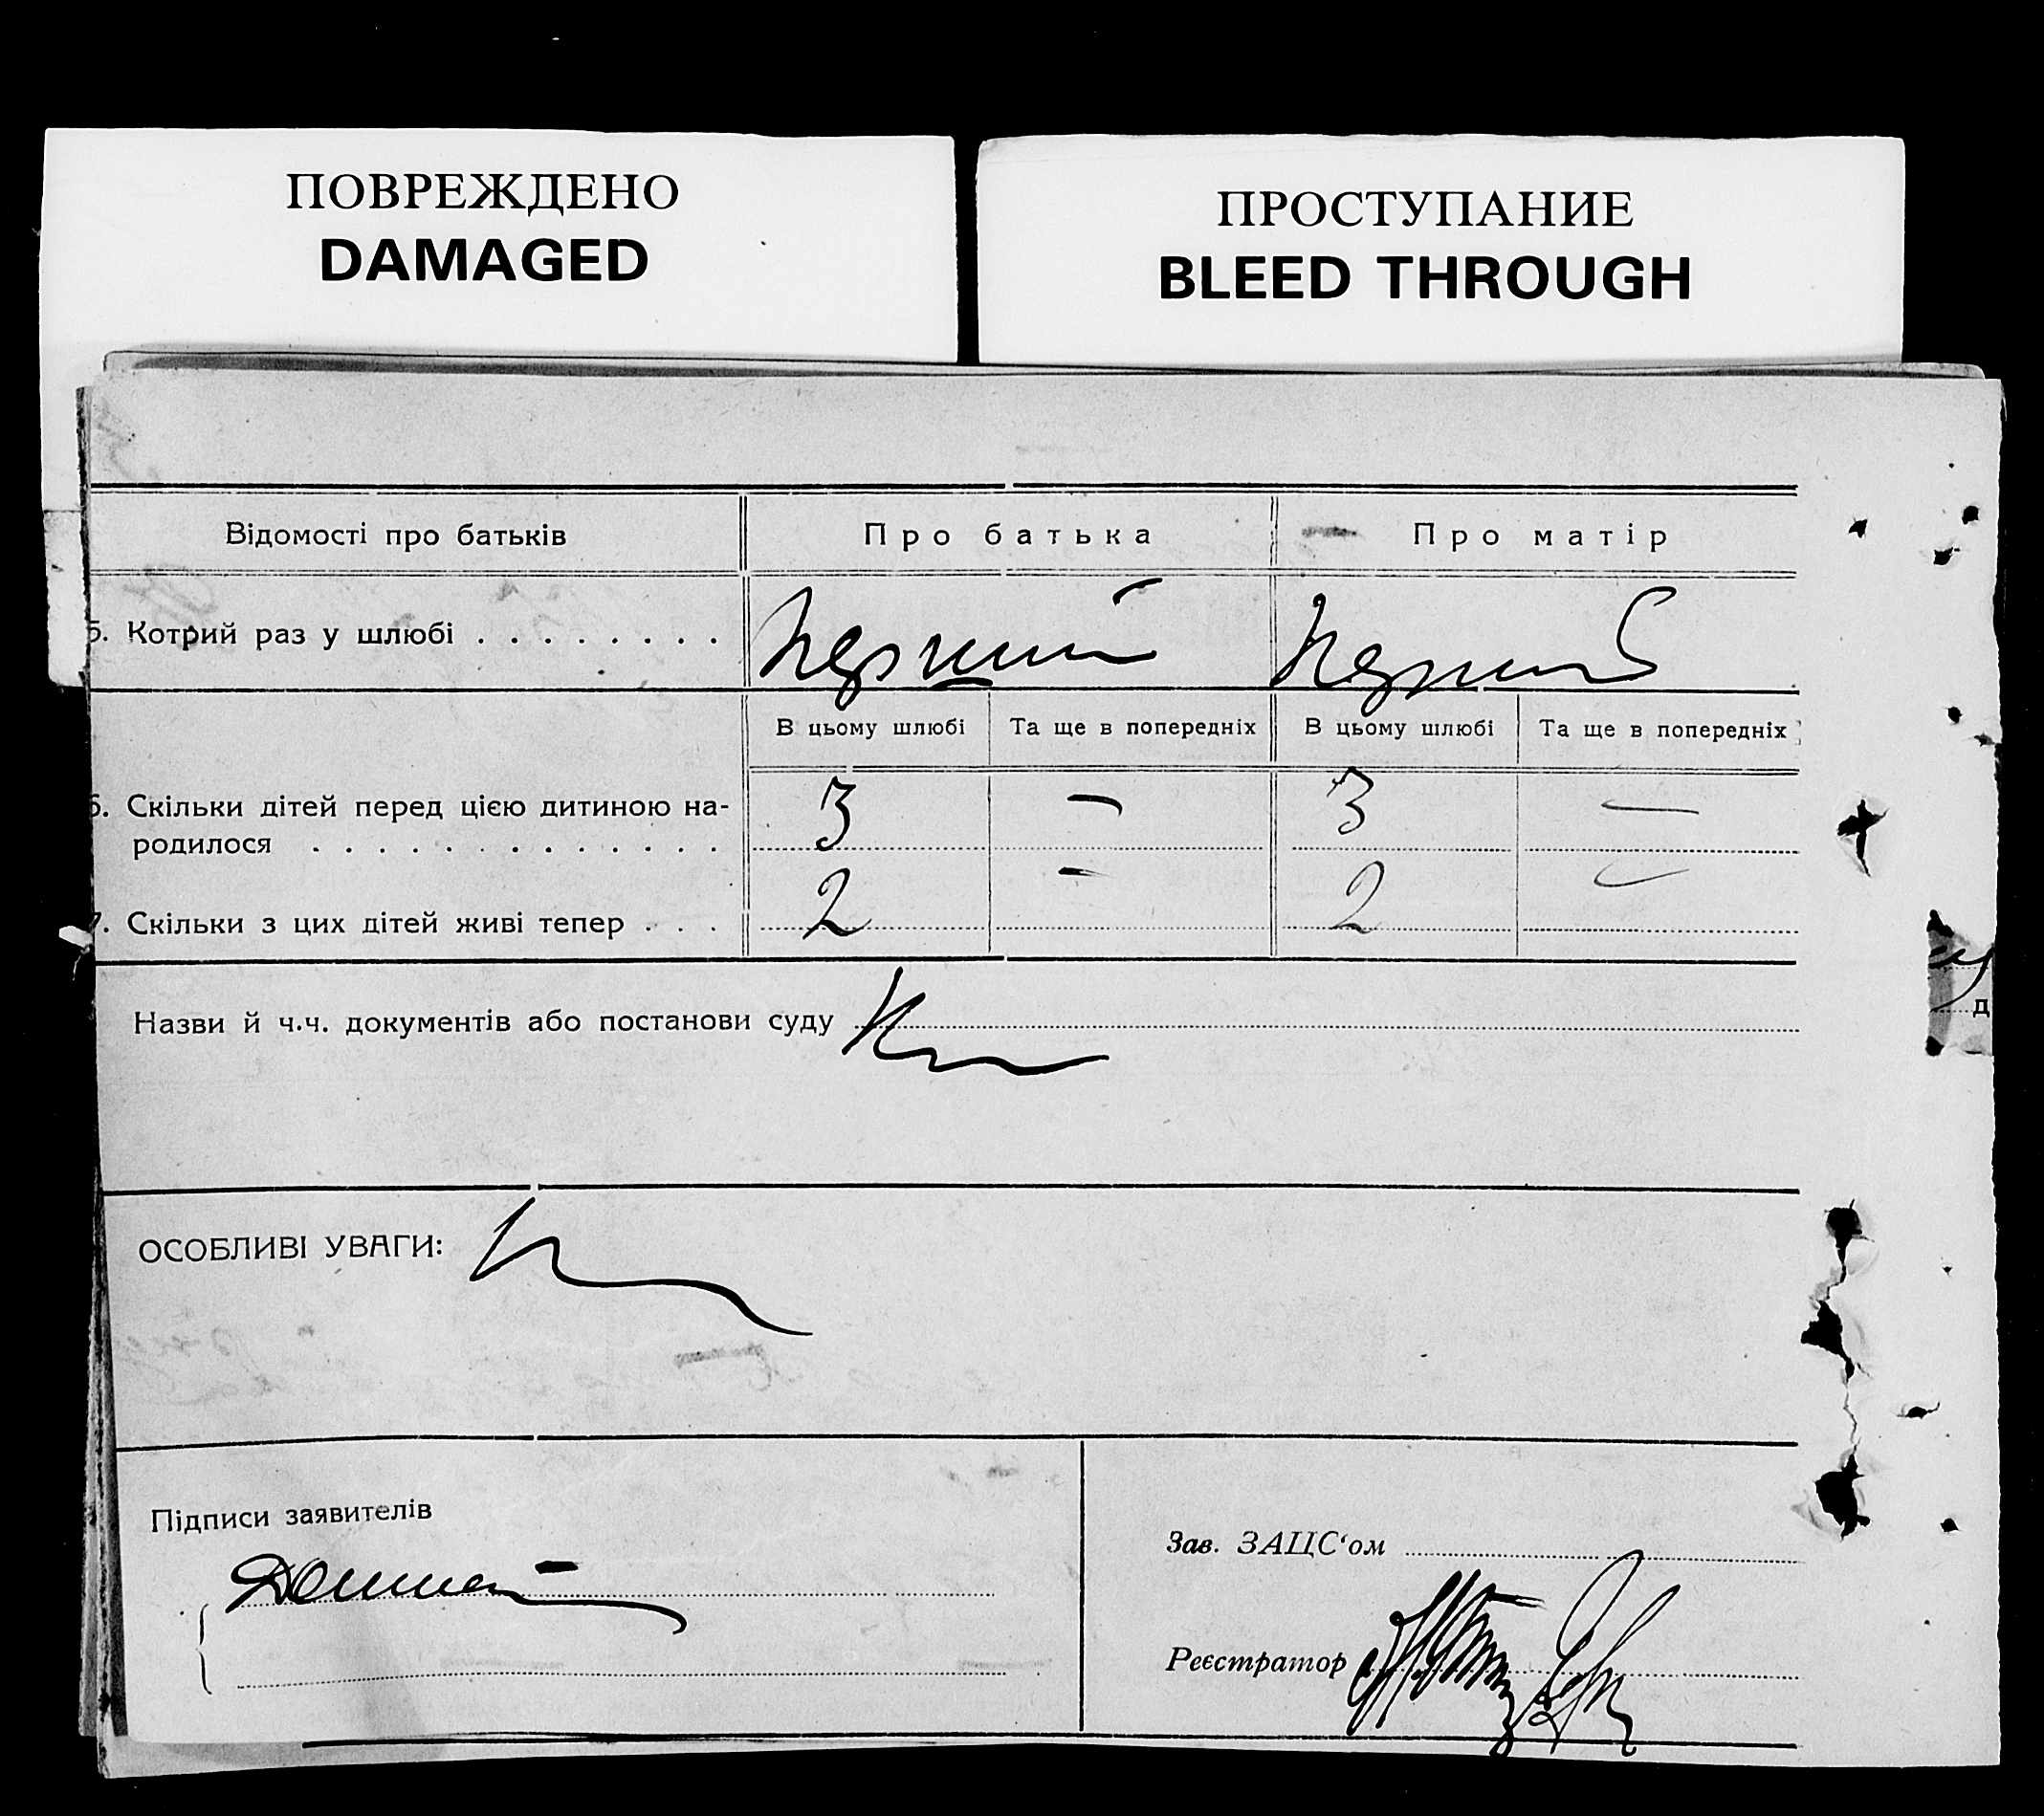 ПОВРЕЖДЕНО
DAMAGED
ПРОСТУПАНИЕ
BLEED THROUGH
Відомості про батьків Про батька Про матір
5. Котрий раз у шлюбі . . . . . . . . Перший Перший
В цьому шлюбі Та ще в попередніх В цьому шлюбі Та ще в попередніх
6. Скільки дітей перед цією дитиною на- 3 — 3 —
родилося . . . . . . . . . . . . .
7. Скільки з цих дітей живі тепер . . . 2 — 2 —
Назви й ч.ч. документів або постанови суду
д
ОСОБЛИВІ УВАГИ:
Підписи заявителів
Зав. ЗАЦС‘ом
Реєстратор